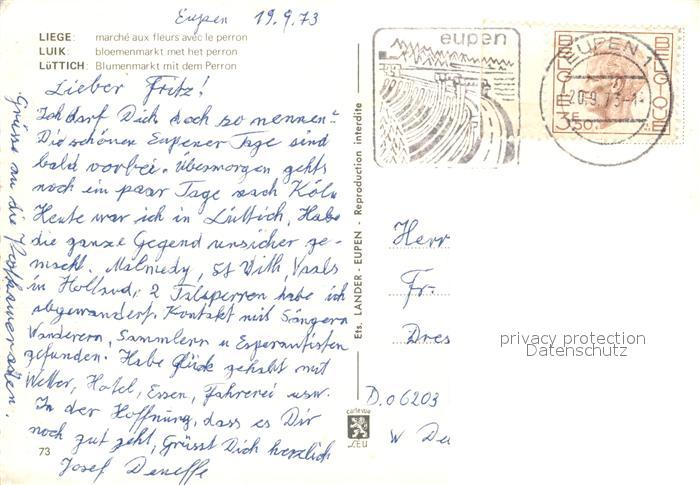 Eupen 19.9.73
LIEGE: marché aux fleurs avec le perron
LUIK: bloemenmarkt met het perron
LüTTICH: Blumenmarkt mit dem Perron
Lieber Fritz!
Ich darf Dich doch so nennen?
Die schönen Eupener Tage sind
bald vorbei. Übermorgen gehts
noch ein paar Tage nach Köln
Heute war ich in Lüttich, Habe
die ganze Gegend unsicher ge-
macht. Malmedy, St Vith, Vaals
in Holland, 2 Talsperren habe ich
abgewandert. Kontakt mit Sängern
Wanderern, Sammlern u Esperantisten
gefunden. Habe Glück gehabt mit
Wetter, Hotel, Essen, Fahrerei usw.
In der Hoffnung, dass es Dir
noch gut geht, Grüsst Dich herzlich
Josef Deneffe
Grüsse an die
73
Ets. LANDER - EUPEN - Reproduction interdite
cartevue
LEU
eupen
BELGIE
BELGIQUE
3F50
EUPEN 1
20.9.73
Herr
Fr.
Dres
D.o 6203
W Deu
privacy protection
Datenschutz